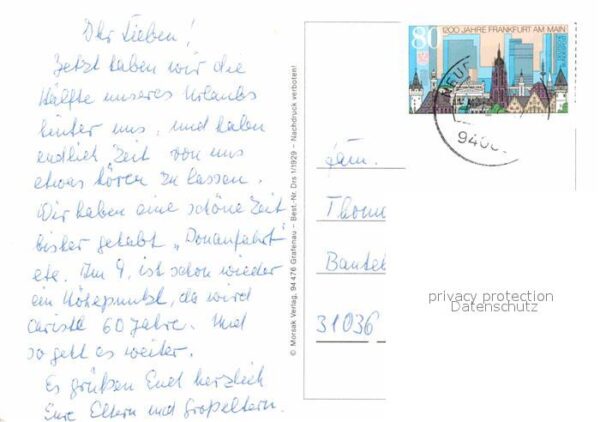 Ihr Lieben!
Jetzt haben wir die
Hälfte unseres Urlaubs
hinter uns, und haben
endlich Zeit von uns
etwas hören zu lassen.
Wir haben eine schöne Zeit
bisher gehabt „Donaufahrt"
etc. Am 9. ist schon wieder
ein Höhepunkt, da wird
Christl 60 Jahre. Und
so geht es weiter.
Es grüßen Euch herzlich
Eure Eltern und Großeltern.
© Morsak Verlag, 94476 Grafenau – Best.-Nr. Drs 1/1929 – Nachdruck verboten!
80 1200 JAHRE FRANKFURT AM MAIN
940
Fam.
Thom
Bantel
31036
privacy protection
Datenschutz